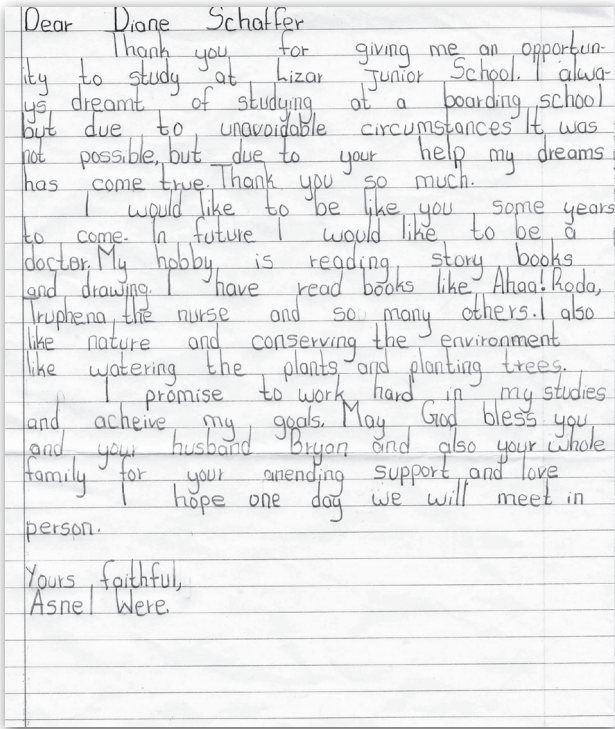 Dear Diane Schaffer
Thank you for giving me an opportun-
ity to study at Lizar Junior School. I alwa-
ys dreamt of studying at a boarding school
but due to unavoidable circumstances It was
not possible, but due to your help my dreams
has come true. Thank you so much.
I would like to be like you some years
to come. In future I would like to be a
doctor. My hobby is reading story books
and drawing. I have read books like Ahaa! Roda,
Truphena the nurse and so many others. I also
like nature and conserving the environment
like watering the plants and planting trees.
I promise to work hard in my studies
and acheive my goals. May God bless you
and your husband Bryan and also your whole
family for your anending support and love
I hope one day we will meet in
person.
Yours faithful,
Asnel Were.